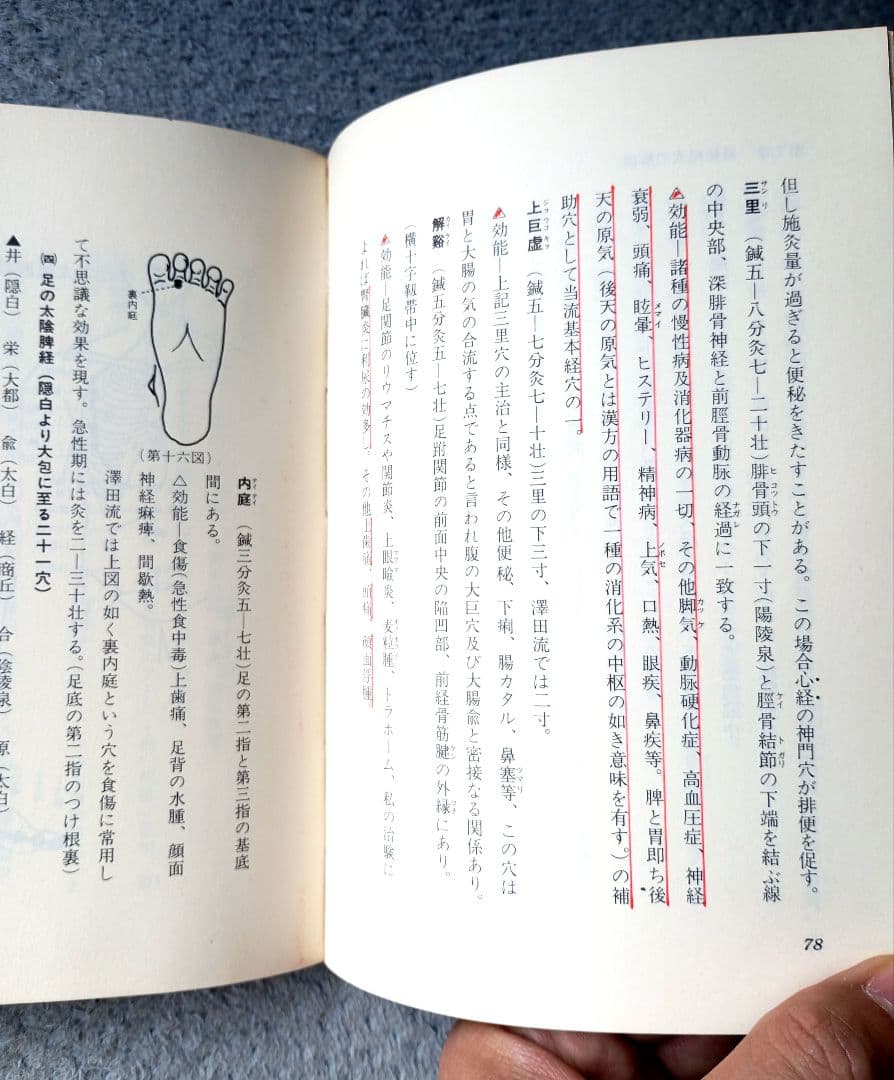 但し施灸量が過ぎると便秘をきたすことがある。この場合心経の神門穴が排便を促す。
三里（鍼五―八分灸七―二十壮）腓骨頭の下一寸（陽陵泉）と脛骨結節の下端を結ぶ線
サンリ
ヒコットウ
ケイ
トガリ
の中央部、深腓骨神経と前脛骨動脈の経過に一致する。
ナガレ
▲効能―諸種の慢性病及消化器病の一切、その他脚気、動脈硬化症、高血圧症、神経
カッケ
衰弱、頭痛、眩暈、ヒステリー、精神病、上気、口熱、眼疾、鼻疾等。脾と胃即ち後
メマイ
ノボセ
天の原気（後天の原気とは漢方の用語で一種の消化系の中枢の如き意味を有す。）の補
助穴として当流基本経穴の一。
上巨虚（鍼五―七分灸七―十壮）三里の下三寸、澤田流では二寸。
ジョウコキョ
▲効能―上記三里穴の主治と同様、その他便秘、下痢、腸カタル、鼻塞等、この穴は
ツマリ
胃と大腸の気の合流する点であると言われ腹の大巨穴及び大腸兪と密接なる関係あり。
解谿（鍼五分灸五―七壮）足跗関節の前面中央の陥凹部、前経骨筋腱の外縁にあり。
カイケイ
ケン
（横十字靱帯中に位す）
△効能―足関節のリウマチスや関節炎、上眼瞼炎、麦粒腫、トラホーム、私の治験に
よれば腎臓炎に利尿の効多し。その他上歯痛、頭痛、顔面浮腫
78
内庭（鍼三分灸五―七壮）足の第二指と第三指の基底
ナイテイ
間にある。
△効能―食傷（急性食中毒）上歯痛、足背の水腫、顔面
神経麻痺、間歇熱。
澤田流では上図の如く裏内庭という穴を食傷に常用し
裏内庭
（第十六図）
て不思議な効果を現す。急性期には灸を二―三十壮する。（足底の第二指のつけ根裏）
㈣ 足の太陰脾経（隠白より大包に至る二十一穴）
▲井（隠白） 栄（大都） 兪（太白） 経（商丘） 合（陰陵泉） 原（太白）